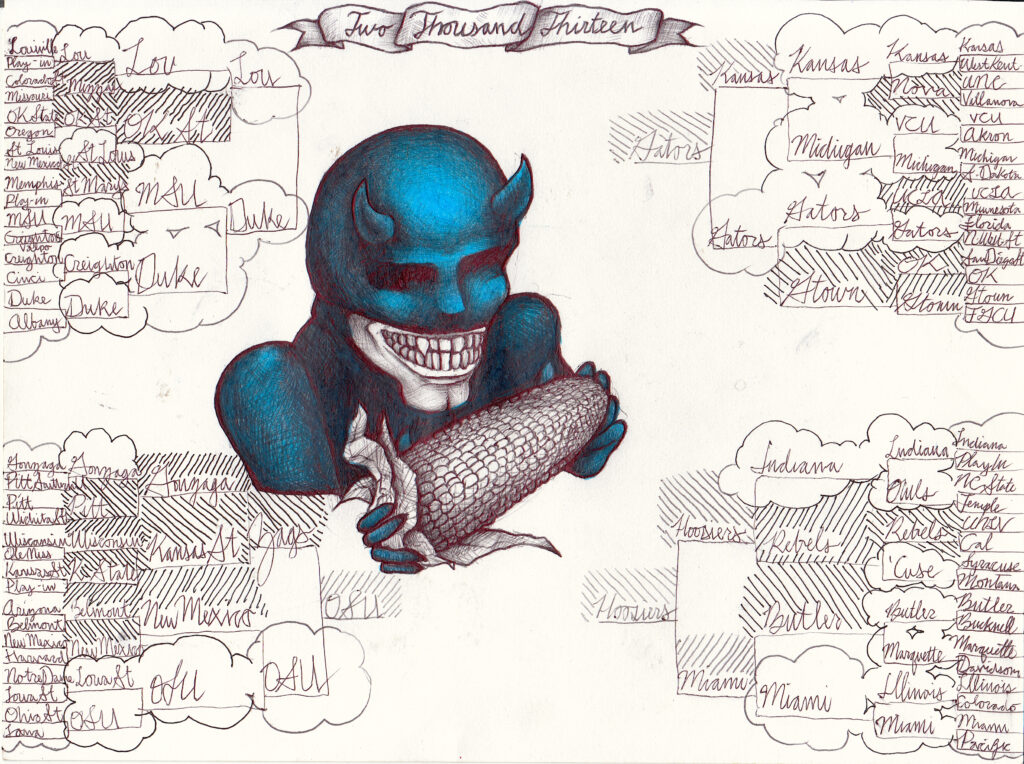 Two Thousand Thirteen
Louiville
Play-in
Colorado St
Missouri
OK State
Oregon
St Louis
New Mexico
Memphis
Play-in
MSU
Creighton
Valpo
Creighton
Cinci
Duke
Albany
Lou
OK St
St Louis
St Mary
MSU
Creighton
Duke
Lou
OK St
MSU
Duke
Lou
Duke
Kansas
West Kent
UNC
Villanova
VCU
Akron
Michigan
S. Dakota
UCLA
Minnesota
Florida
NWst. St
San Diego St
OK
Gtown
FGCU
Kansas
Nova
VCU
Michigan
UCLA
Gators
OK
Gtown
Kansas
Michigan
Gators
Gtown
Kansas
Gators
Gators
Gonzaga
Pitt
Wichita St
Wisconsin
Ole Miss
Kansas St
Play-in
Arizona
Belmont
New Mexico
Harvard
Notre Dame
Iowa St
Ohio St
Iona
Gonzaga
Pitt
Wisconsin
State
Belmont
New Mexico
Iowa St
OSU
Gonzaga
Kansas St
New Mexico
OSU
Zags
OSU
OSU
Indiana
Play In
NC State
Temple
UNLV
Cal
Syracuse
Montana
Butler
Bucknell
Marquette
Davidson
Illinois
Colorado
Miami
Pacific
Indiana
Owls
Rebels
'Cuse
Butler
Marquette
Illinois
Miami
Indiana
Rebels
Butler
Miami
Hoosiers
Miami
Hoosiers